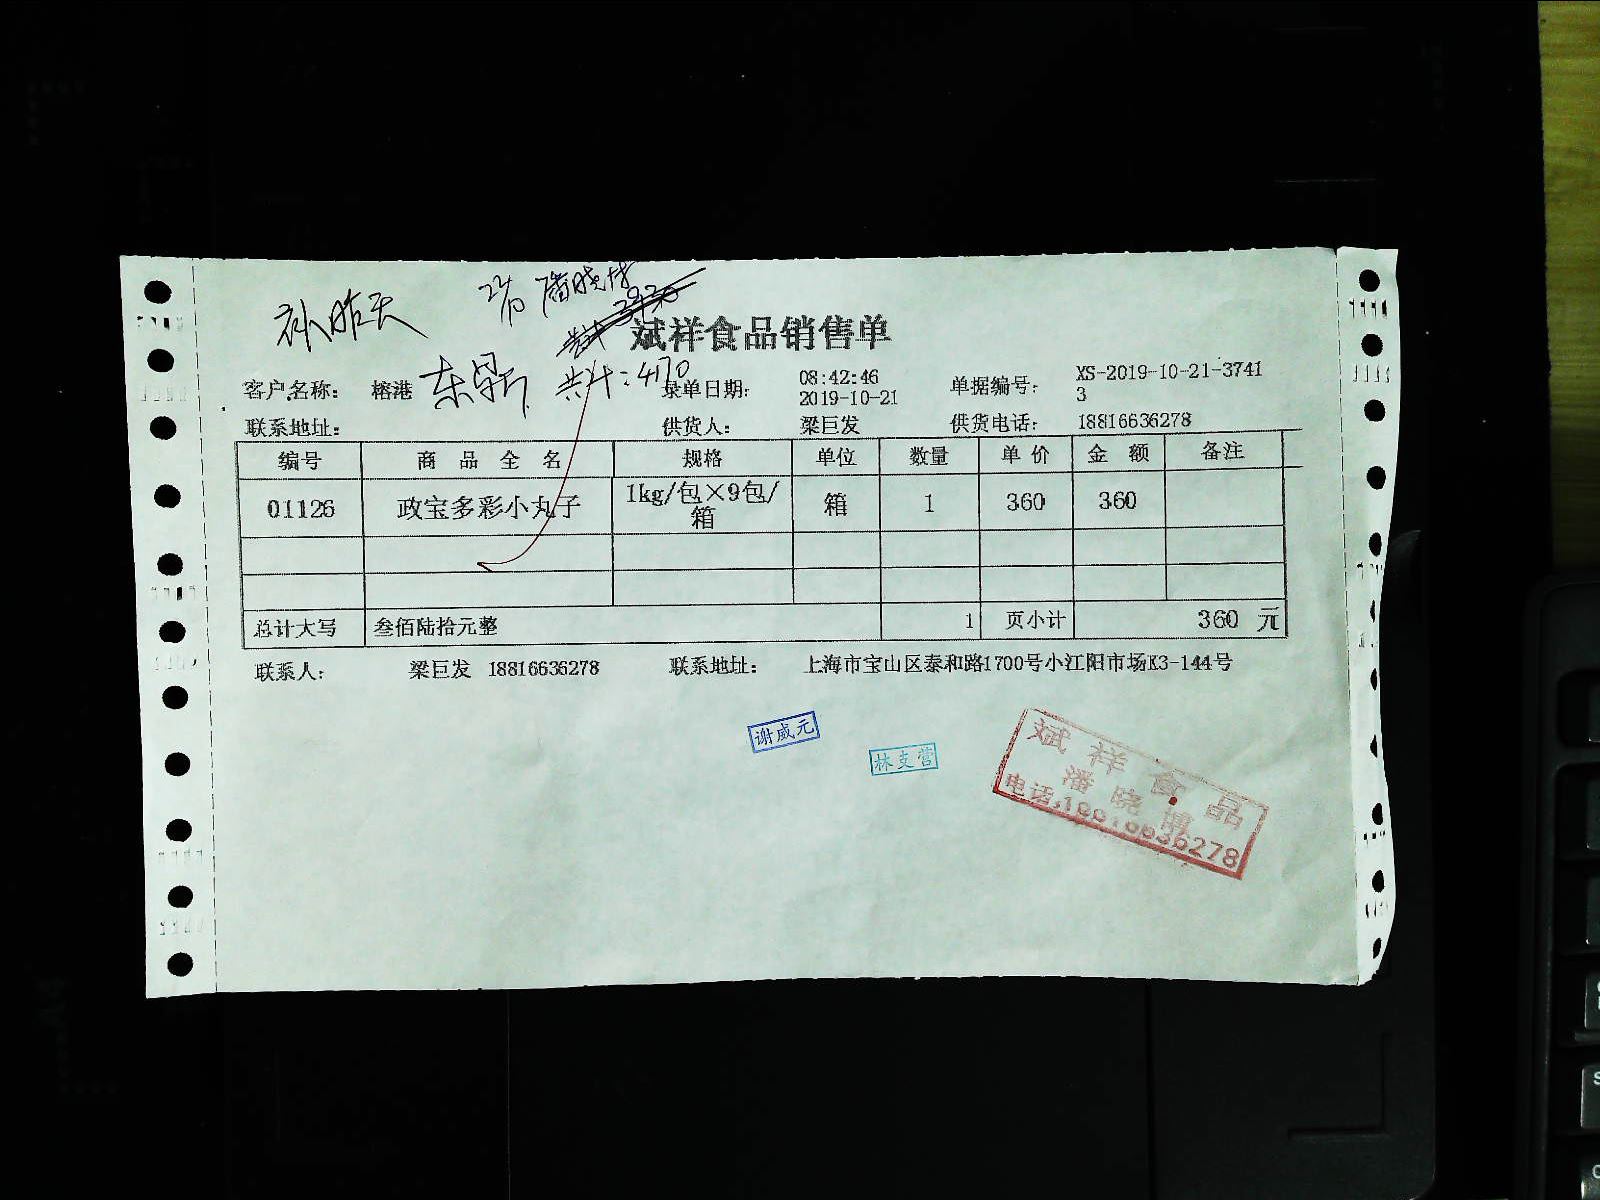 补昨天
斌祥食品销售单
客户名称： 榕港 共计：4170 录单日期： 08:42:46 2019-10-21 单据编号： XS-2019-10-21-37413
联系地址： 供货人： 梁巨发 供货电话： 18816636278
编号 商品全名 规格 单位 数量 单价 金额 备注
01126 政宝多彩小丸子 1kg/包×9包/箱 箱 1 360 360
总计大写 叁佰陆拾元整 1 页小计 360 元
联系人： 梁巨发 18816636278 联系地址： 上海市宝山区泰和路1700号小江阳市场E3-144号
谢威元
林支营
斌祥食品
电话:18816636278